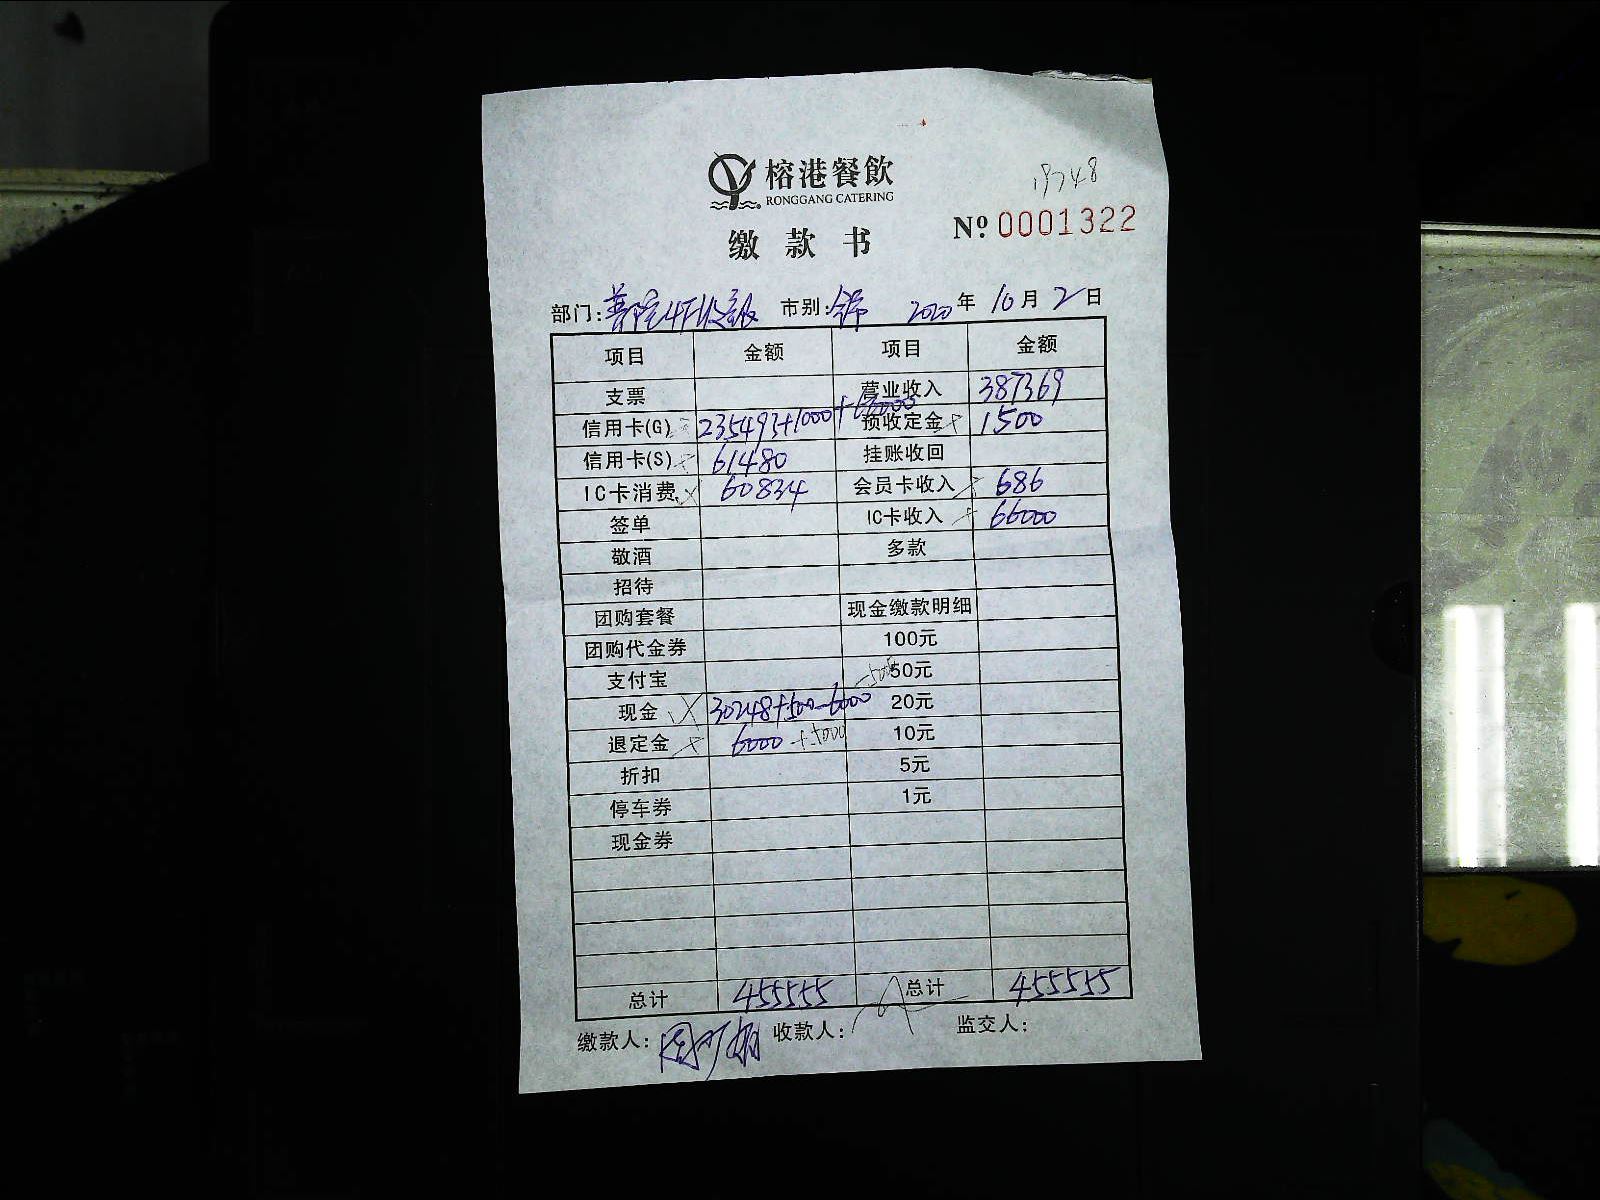 榕港餐飲
RONGGANG CATERING
19748
缴款书
Nº 0001322
部门:普陀4F收银 市别: 2020年10月2日
项目 金额 项目 金额
支票 营业收入 387369
信用卡(G) 235493+1000+66000 预收定金 1500
信用卡(S) 61480 挂账收回
IC卡消费 60834 会员卡收入 686
签单 IC卡收入 66000
敬酒 多款
招待
团购套餐 现金缴款明细
团购代金券 100元
支付宝 50元
现金 30248+500-6000-5000 20元
退定金 6000+5000 10元
折扣 5元
停车券 1元
现金券
总计 455555 总计 455555
缴款人: 收款人: 监交人: